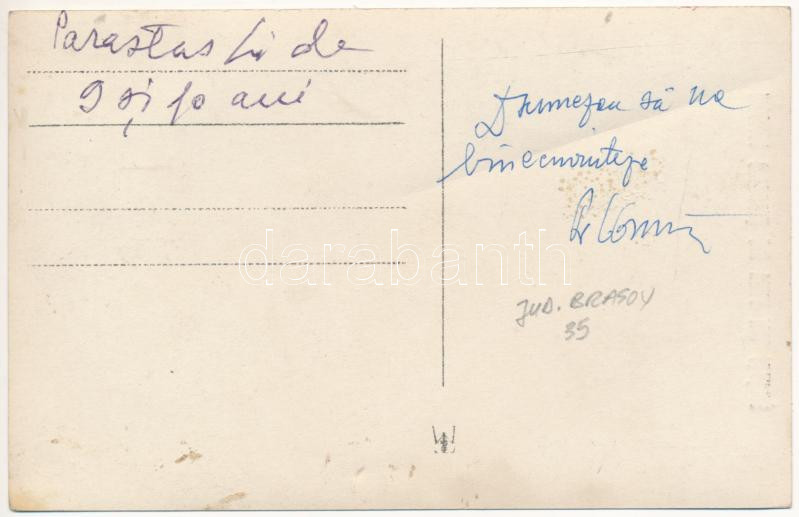 Parastas
de
9 și 10 ani
Dumnezeu să na
binecuvinteze
JUD. BRASOV
35
darabanth